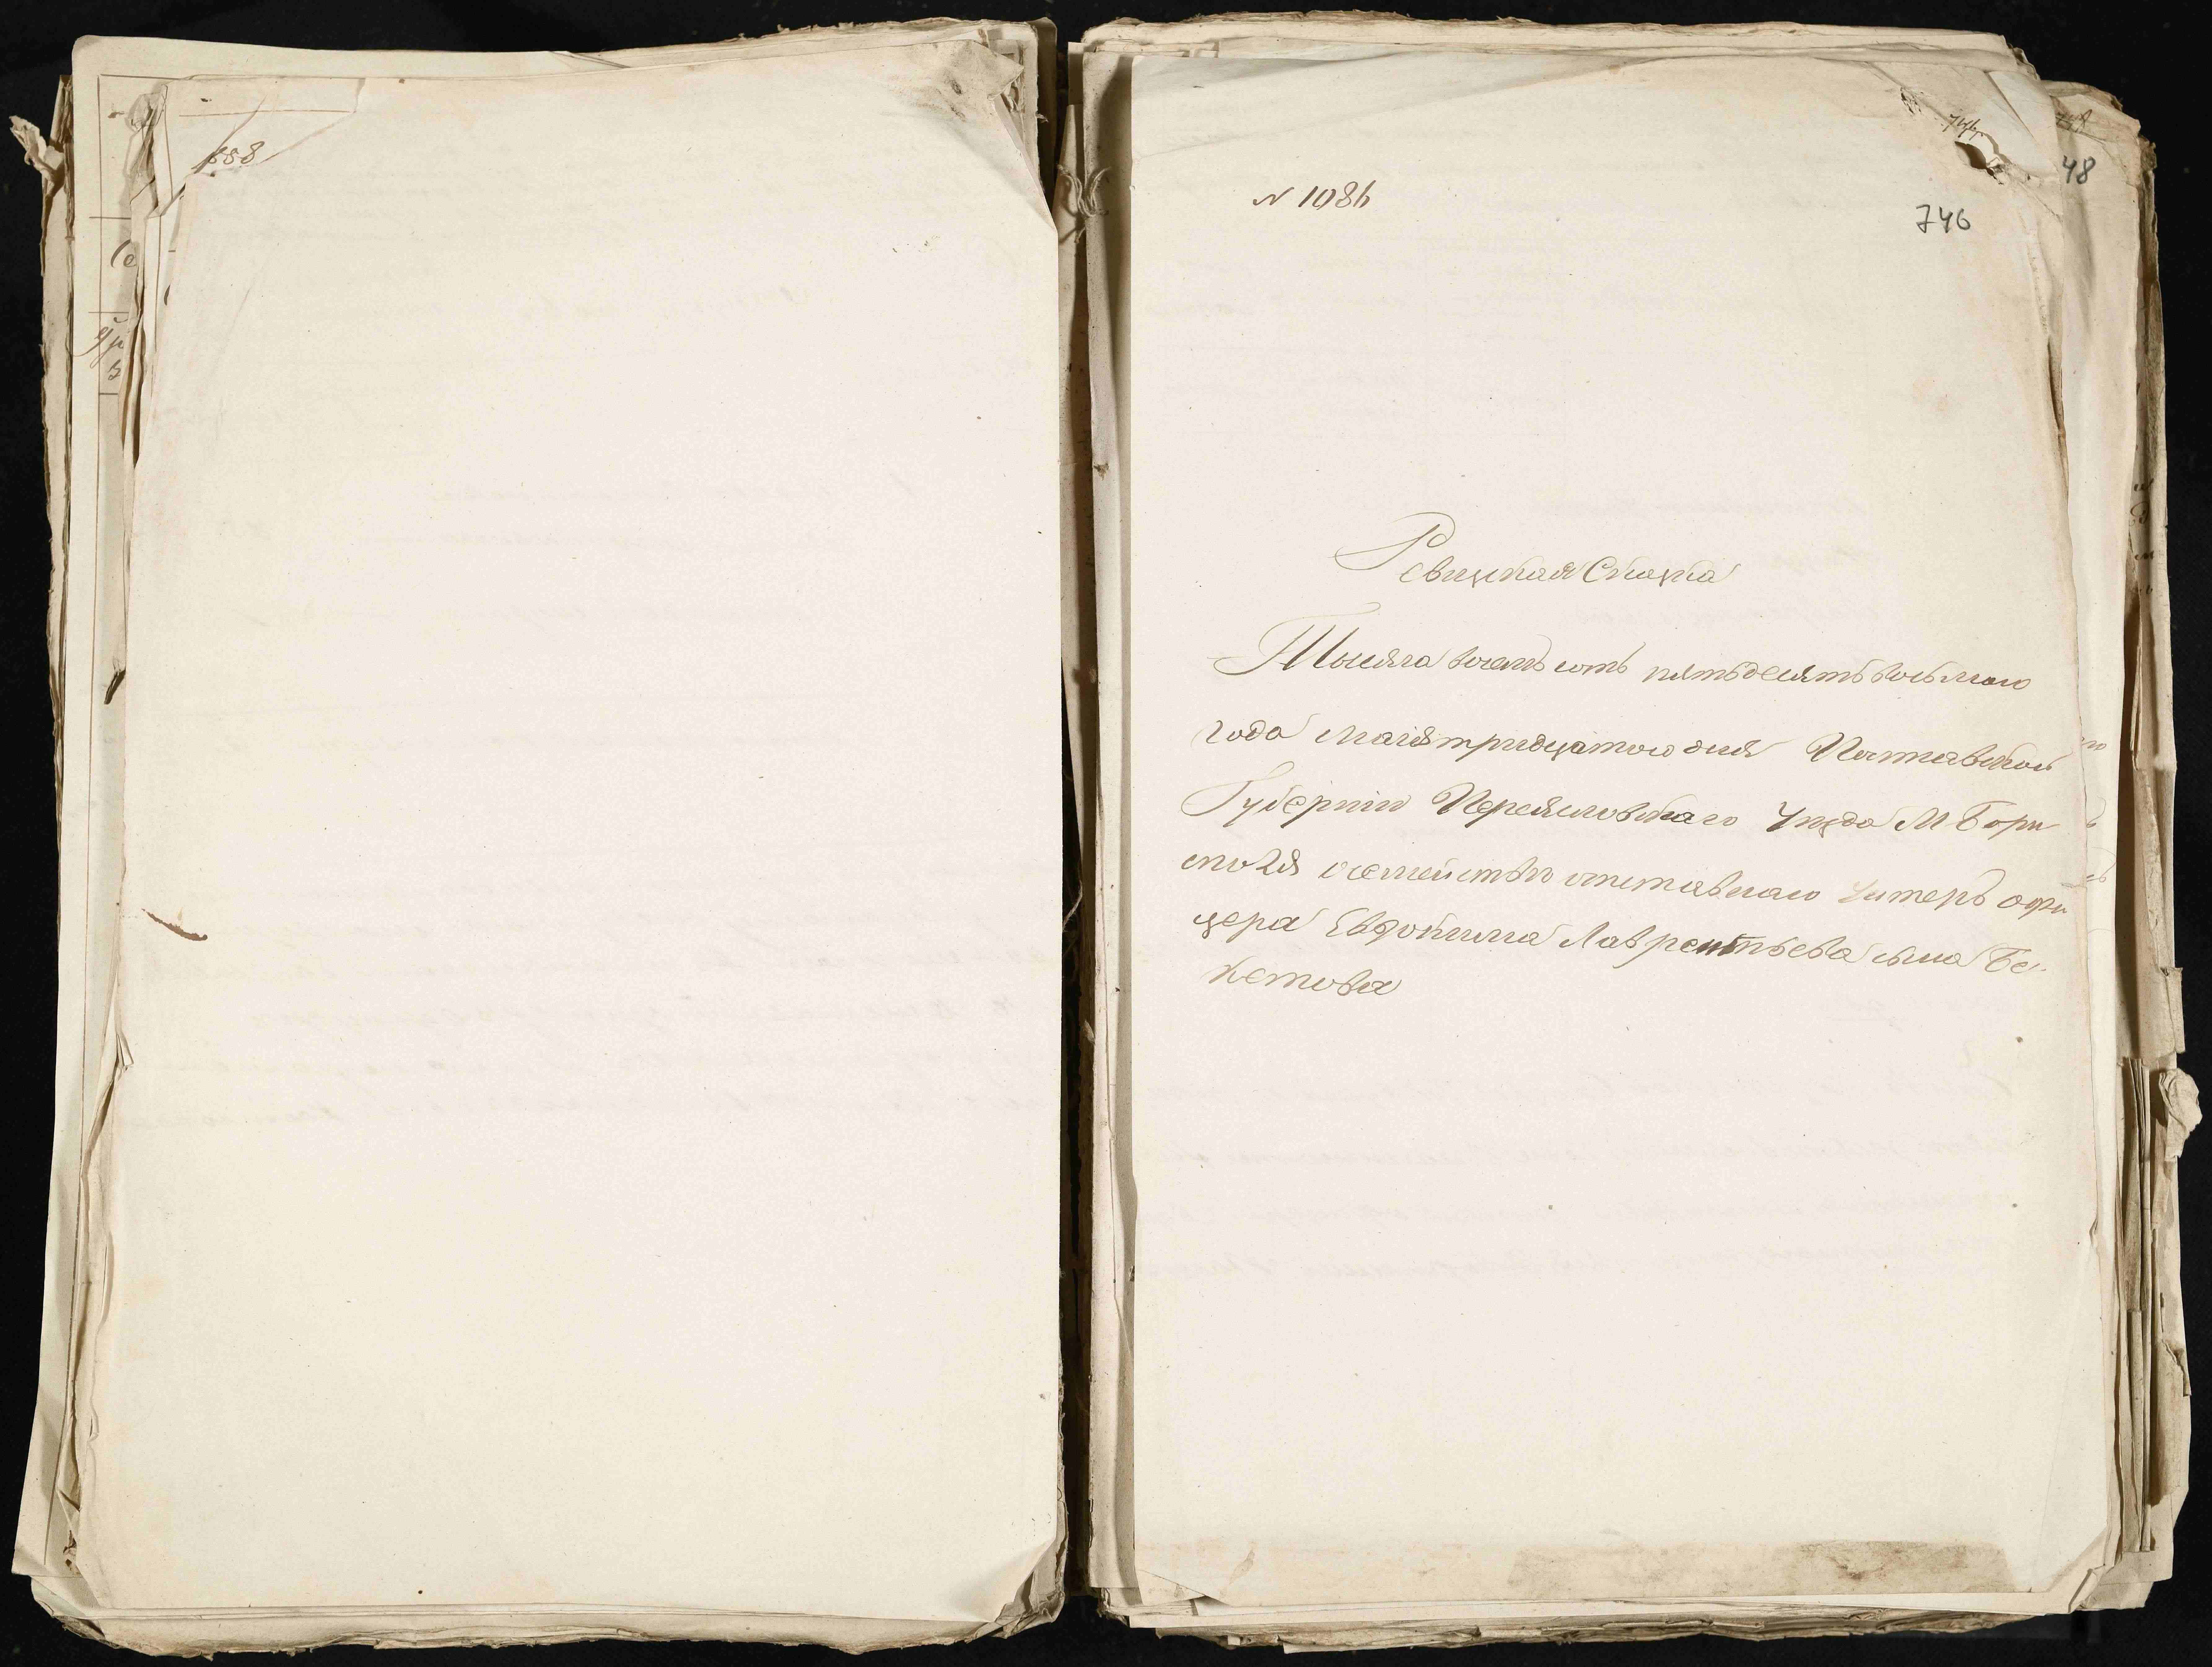 858
№ 1086
746
48
746
Ревизкая Сказка
Тысяча восемь сотъ пятьдесятъ восьмого
года Маія тридцатого дня Полтавской
Губерніи Переяславскаго Уезда М Бори
споля осемействе отставнаго Унтеръ офи
цера Евдокима Лаврентьева сына Бе-
кетова